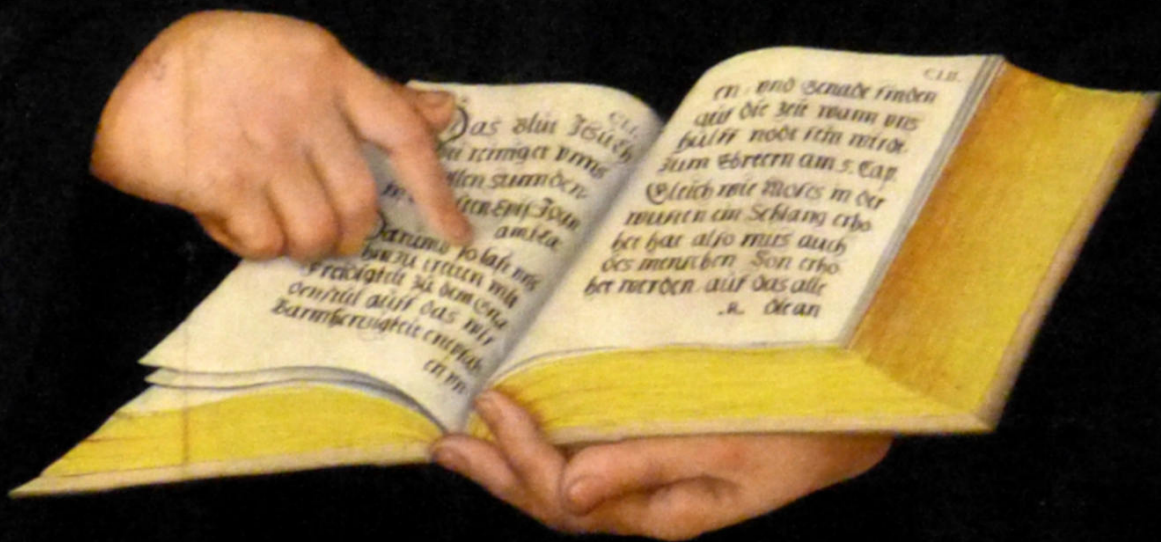 Das Blut Jesu Ch
ti reiniget vnns
allen sunnden
sten Epis Joan
am 1 ca
Darumb so last vns
hinzu tretten mit
Freidigkeit zu dem Gna
denstul auff das wir
Barmhertzigkeit empfah
en vn
en . vnd Genade finden
auf die zeit wann vns
hulff nodt sein wirdt.
Zum Ebreern am 5. Cap
Gleich wie Moses in der
wusten ein Schlang erho
het hat also mus auch
des menschen Son erho
het werden. auf das alle
die an